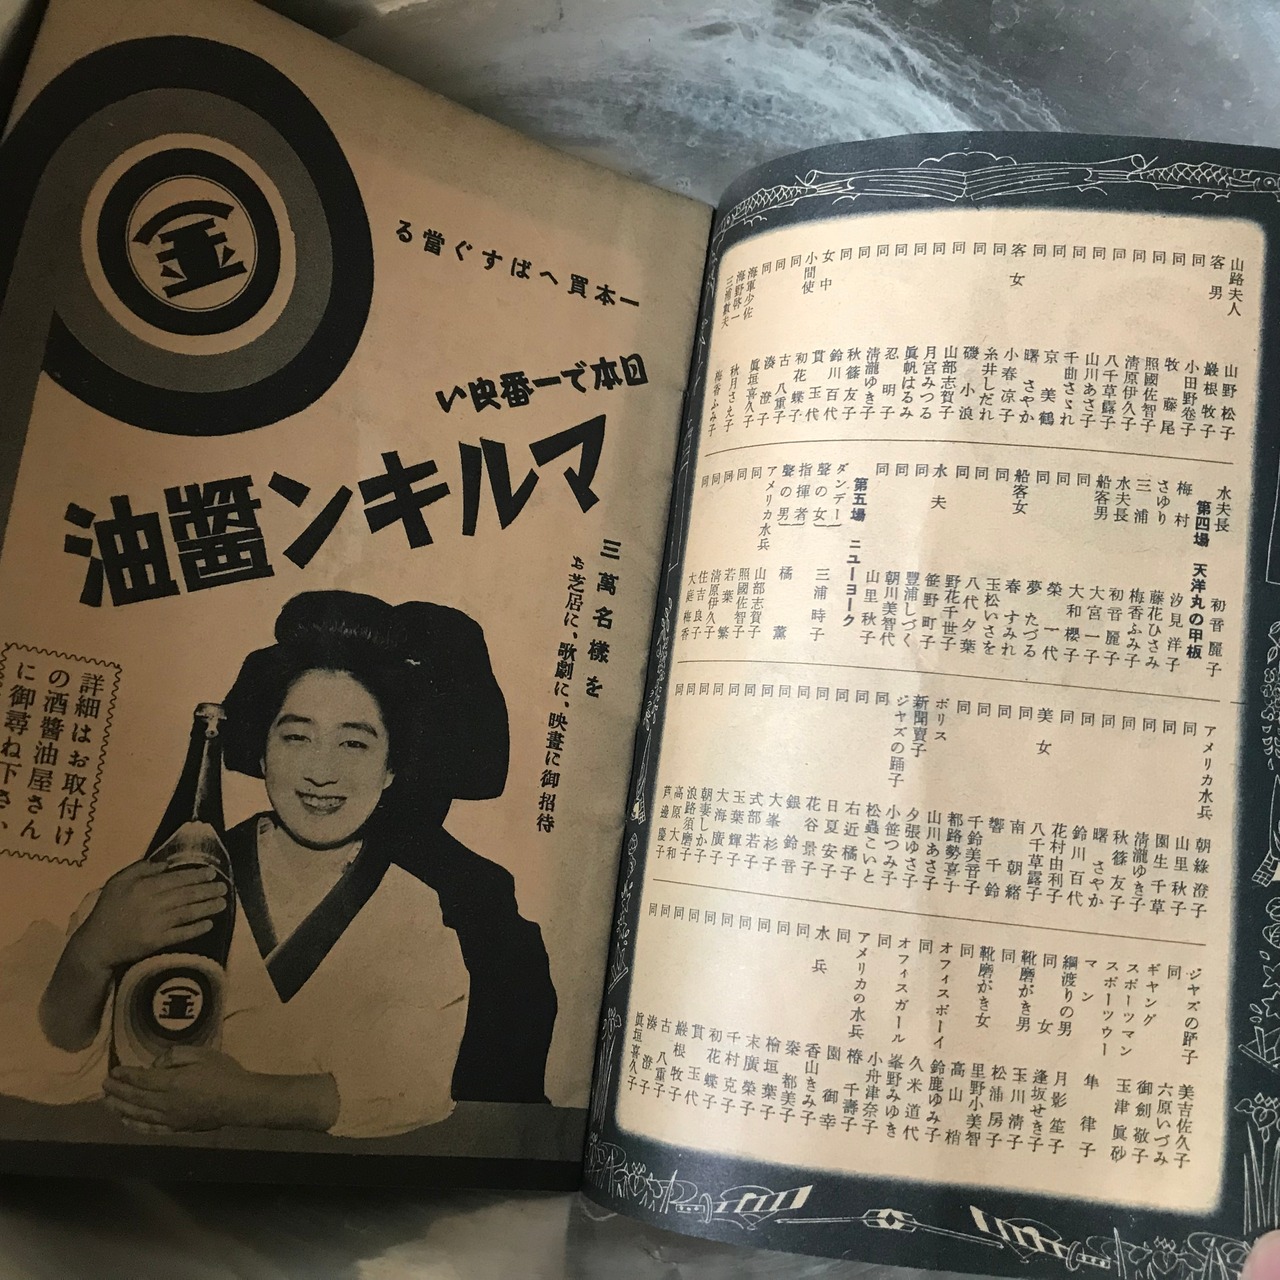 山路夫人 山野松子
客男 巌根牧子
同 小田野卷子
同 牧藤尾
同 照國佐智子
同 清原伊久子
同 八千草露子
同 山川あさ子
同 千曲さゝれ
同 京美鶴
同 曙さやか
客女 小春凉子
同 糸井しだれ
同 磯小浪
同 山部志賀子
同 月宮みつる
同 眞帆はるみ
同 忍明子
同 清瀧ゆき子
同 秋篠友子
同 鈴川百代
女中 貫玉代
小間使 初花蝶子
同 古八重子
同 湊澄子
同 眞垣喜久子
海軍少佐
海野啓一 秋月さえ子
梅香ふみ子
水夫長 初音麗子
第四場 天洋丸の甲板
梅村 汐見洋子
さゆり 藤花ひさみ
三浦 梅香ふみ子
水夫長 初音麗子
船客男 大宮一子
同 大和櫻子
同 榮一代
同 夢たづる
船客女 春すみれ
同 玉松いさを
同 八代夕葉
同 野花千世子
水夫 笹野町子
同 豊浦しづく
同 朝川美智代
同 山里秋子
第五場 ニューヨーク
ダンデー
聲の女 三浦時子
指揮者
聲の男 橘薫
アメリカ水兵 山部志賀子
同 照國佐智子
同 若葉繁
同 清原伊久子
同 住吉良子
同 大庭梅香
アメリカ水兵 朝緑澄子
同 山里秋子
同 園生千草
同 清瀧ゆき子
同 秋篠友子
同 曙さやか
同 鈴川百代
同 花村由利子
美女 八千草露子
同 南朝緒
同 響千鈴
同 千鈴美音子
同 都路勢喜子
ポリス 山川あさ子
新聞賣子 夕張ゆさ子
ジャズの踊子 小笹つみ子
同 松蟲こいと
同 右近橘子
同 日夏安子
同 花谷景子
同 銀鈴音
同 大峯杉子
同 式部若子
同 玉葉輝子
同 大海廣子
同 朝妻しか子
同 浪路須磨子
同 高原大和
同 芦邊慶子
ジャズの踊子 美吉佐久子
同 六原いづみ
ギャング 御劍敬子
スポーツマン 玉津眞砂
スポーツウーマン 隼律子
綱渡りの男 月影笙子
同女 逢坂せき子
靴磨がき男 玉川清子
同 松浦房子
靴磨がき女 里野小美智
同 高山梢
オフィスボーイ 鈴鹿ゆみ子
同 久米道代
オフィスガール 峯野みゆき
同 小舟津奈子
アメリカの水兵 椿千壽子
同 園御幸
水兵 香山きみ子
同 秦都美子
同 檜垣葉子
同 末廣榮子
同 千村克子
同 初花蝶子
同 貫玉代
同 巌根牧子
同 古八重子
同 湊澄子
同 眞垣喜久子
一本買へばすぐ當る
日本で一番良い
マルキン醬油
三萬名樣を
お芝居に、歌劇に、映畫に御招待
詳細はお取付け
の酒醬油屋さん
に御尋ね下さい
金
金